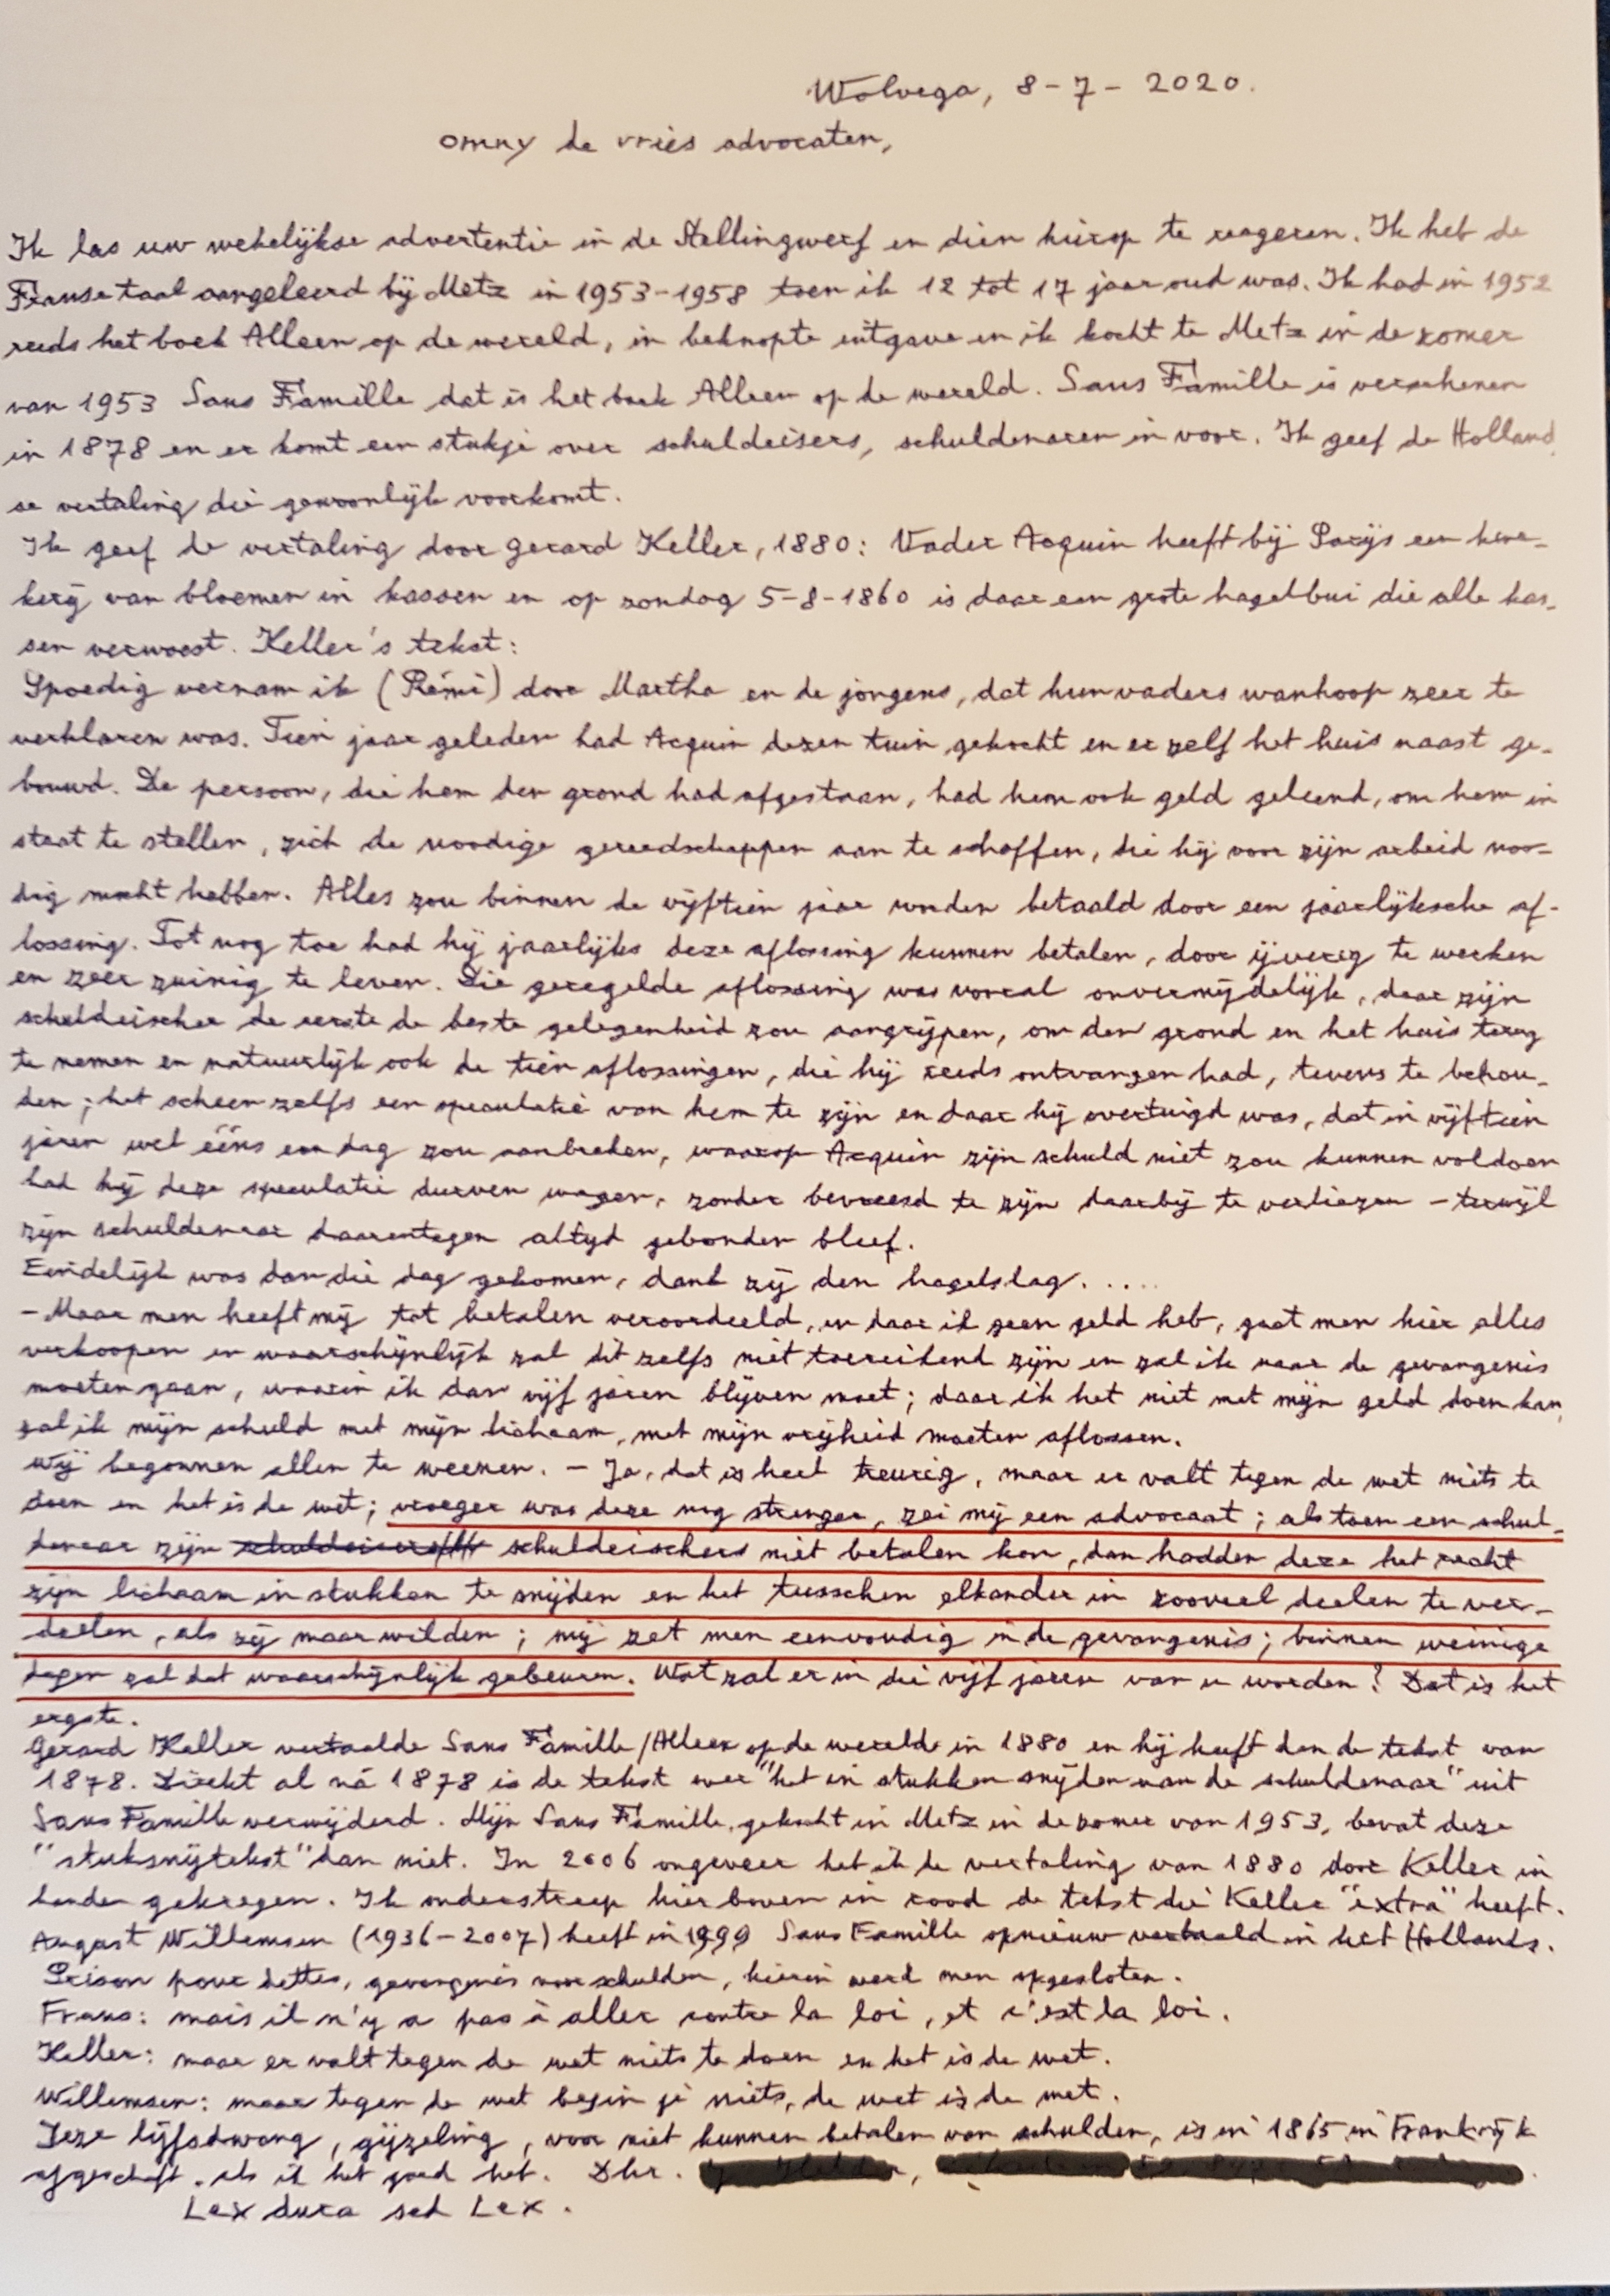 Wolvega, 8-7-2020.
Omny de vries advocaten,
Ik las uw wekelijkse advertentie in de Stellingwerf en dien hierop te reageren. Ik heb de
Franse taal aangeleerd bij Metz in 1953-1958 toen ik 12 tot 17 jaar oud was. Ik had in 1952
reeds het boek Alleen op de wereld, in beknopte uitgave en ik kocht te Metz in de zomer
van 1953 Sans Famille dat is het boek Alleen op de wereld. Sans Famille is verschenen
in 1878 en er komt een stukje over schuldeisers, schuldenaren in voor. Ik geef de Holland
se vertaling die gewoonlijk voorkomt.
Ik geef de vertaling door Gerard Keller, 1880: Vader Acquin heeft bij Parijs een kwe-
kerij van bloemen in kassen en op zondag 5-8-1860 is daar een grote hagelbui die alle kas-
sen verwoest. Keller's tekst:
Spoedig vernam ik (Rémi) door Martha en de jongens, dat hun vaders wanhoop zeer te
verklaren was. Tien jaar geleden had Acquin dezen tuin gekocht en er zelf het huis naast ge-
bouwd. De persoon, die hem den grond had afgestaan, had hem ook geld geleend, om hem in
staat te stellen, zich de noodige gereedschappen aan te schaffen, die hij voor zijn arbeid noo-
dig mocht hebben. Alles zou binnen de vijftien jaar worden betaald door een jaarlijksche af-
lossing. Tot nog toe had hij jaarlijks deze aflossing kunnen betalen, door ijverig te werken
en zeer zuinig te leven. Die geregelde aflossing was vooral onvermijdelijk, daar zijn
schuldeischer de eerste de beste gelegenheid zou aangrijpen, om den grond en het huis terug
te nemen en natuurlijk ook de tien aflossingen, die hij reeds ontvangen had, tevens te behou-
den; het scheen zelfs een speculatie van hem te zijn en daar hij overtuigd was, dat in vijftien
jaren wel ééns een dag zou aanbreken, waarop Acquin zijn schuld niet zou kunnen voldoen
had hij deze speculatie durven wagen, zonder bevreesd te zijn daarbij te verliezen - terwijl
zijn schuldenaar daarentegen altijd gebonden bleef.
Eindelijk was dan die dag gekomen, dank zij den hagelslag.....
- Maar men heeft mij tot betalen veroordeeld, en daar ik geen geld heb, gaat men hier alles
verkoopen en waarschijnlijk zal dit zelfs niet toereikend zijn en zal ik naar de gevangenis
moeten gaan, waarin ik dan vijf jaren blijven moet; daar ik het niet met mijn geld doen kan,
zal ik mijn schuld met mijn lichaam, met mijn vrijheid moeten aflossen.
Wij begonnen allen te weenen. - Ja, dat is heel treurig, maar er valt tegen de wet niets te
doen en het is de wet; vroeger was deze nog strenger, zei mij een advocaat; als toen een schul-
denaar zijn schuldeischers niet betalen kon, dan hadden deze het recht
zijn lichaam in stukken te snijden en het tusschen elkander in zooveel deelen te ver-
deelen, als zij maar wilden; mij zet men eenvoudig in de gevangenis; binnen weinige
dagen zal dat waarschijnlijk gebeuren. Wat zal er in die vijf jaren van u worden? Dat is het
ergste.
Gerard Keller vertaalde Sans Famille/Alleen op de wereld in 1880 en hij heeft dan de tekst van
1878. Direkt al ná 1878 is de tekst over "het in stukken snijden van de schuldenaar" uit
Sans Famille verwijderd. Mijn Sans Famille, gekocht in Metz in de zomer van 1953, bevat deze
"stuksnijtekst" dan niet. In 2006 ongeveer heb ik de vertaling van 1880 door Keller in
handen gekregen. Ik onderstreep hierboven in rood de tekst die Keller "extra" heeft.
August Willemsen (1936-2007) heeft in 1999 Sans Famille opnieuw vertaald in het Hollands.
Prison pour dettes, gevangenis voor schulden, hierin werd men opgesloten.
Frans: mais il n'y a pas à aller contre la loi, et c'est la loi.
Keller: maar er valt tegen de wet niets te doen en het is de wet.
Willemsen: maar tegen de wet begin je niets, de wet is de wet.
Deze lijfsdwang, gijzeling, voor niet kunnen betalen van schulden, is in 1865 in Frankrijk
afgeschaft, als ik het goed heb. Dhr.
Lex dura sed Lex.